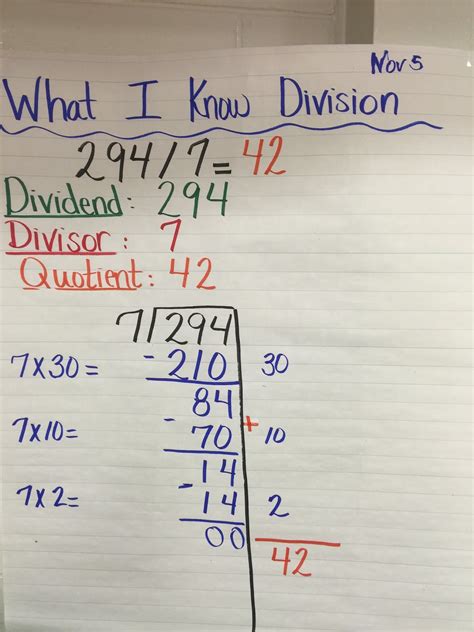 Nov 5
What I Know Division
294/7=42
Dividend: 294
Divisor: 7
Quotient: 42
7)294
7x30= -210 30
84
7x10= - 70 + 10
14
7x2= - 14 2
00
42